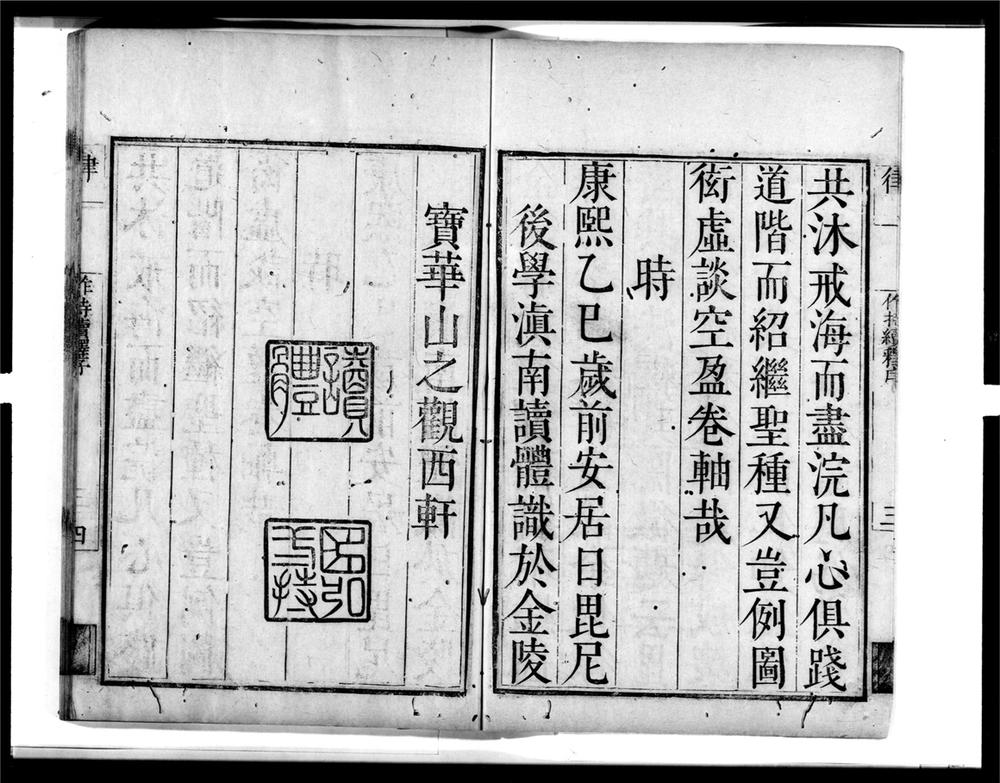 律一 作持續釋序 三
共沐戒海而盡浣凡心俱踐
道階而紹繼聖種又豈例圖
衒虛談空盈卷軸哉
時
康熙乙巳歲前安居日毘尼
後學滇南讀體識於金陵
寶華山之觀西軒
讀體
律一 作持續釋序 四